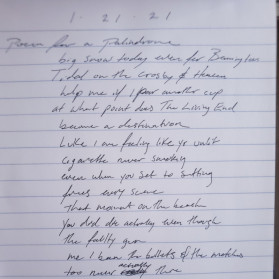 1 · 21 · 21
Poem for a Palindrome
big snow today even for Bennington
T. ded on the Crosby &
help me if I pour another cup
at what point does The Lissing End
become a destination
Luke I am feeling like yr unlit
cigarette never smoking
even when you set to
fires every scene
That moment on the beach
You did die actually even though
the gun
me I been the bullets of the matches
too never actually there